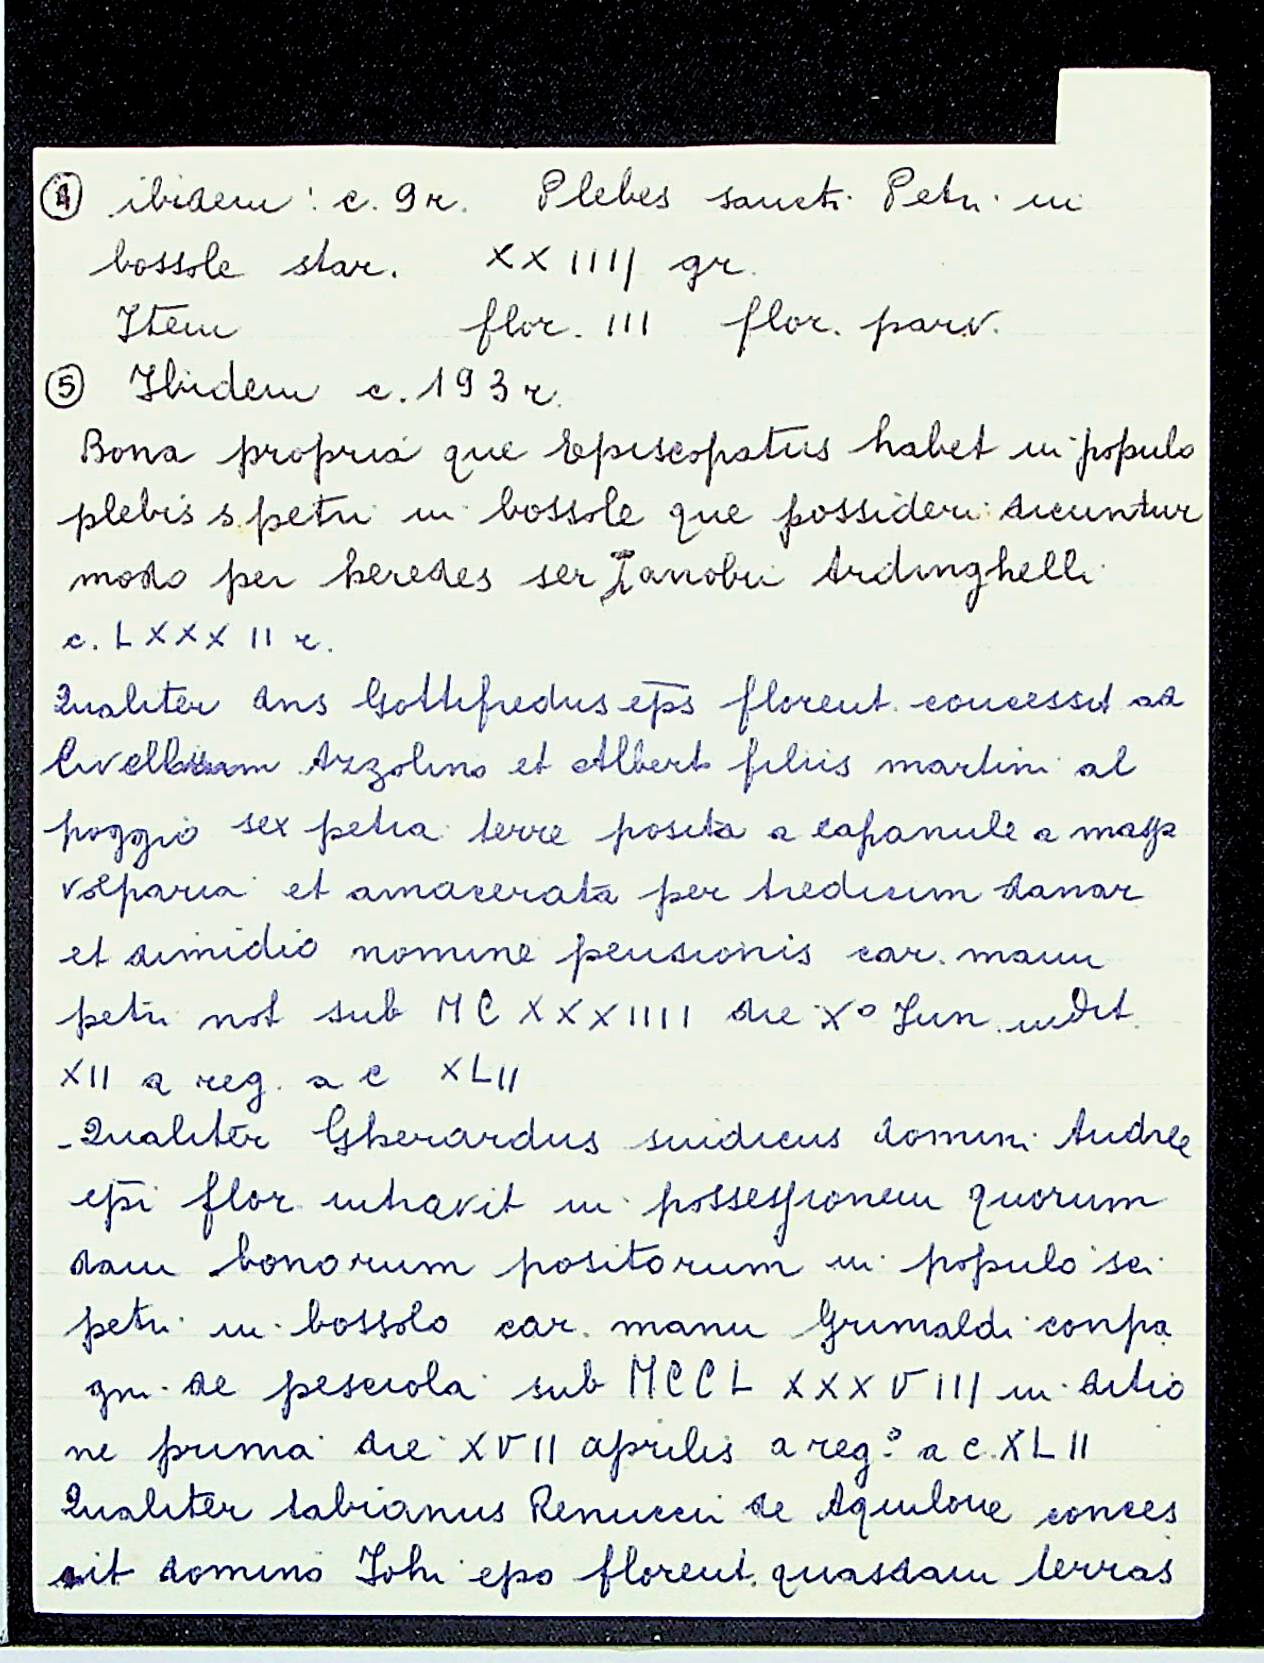 ④ ibidem: c. 9r. Plebes sancti Petri in
bossole star. XXIIII gr.
Item flor. III flor. parv.
⑤ Ibidem c. 193r.
Bona propria que Episcopatus habet in populo
plebis s. petri in bossole que possideri dicuntur
modo per heredes ser Zanobii Ardinghelli
c. LXXXII r.
Qualiter dns Gottifredus eps florent. concessit ad
livellum Azzolino et Alberto filiis martini al
poggio sex petia terre posita a capanule a
volparia et amacerata per tredicim danar
et dimidio nomine pensionis car. manu
petri not sub MCXXXIIII die X° Jun. indit.
XII a reg. a c XLII
- Qualiter Gherardus sindicus domini Andree
epi flor intravit in possessionem quorum
dam bonorum positorum in populo sci
petri in bossolo car. manu Grimaldi conpa
gni de pesciola sub MCCLXXXVIII in ditio
ne prima die XVII aprilis a reg° a c. XLII
Qualiter Renucci de Aquilone conces
sit domino Iohi epo florent. quasdam terras